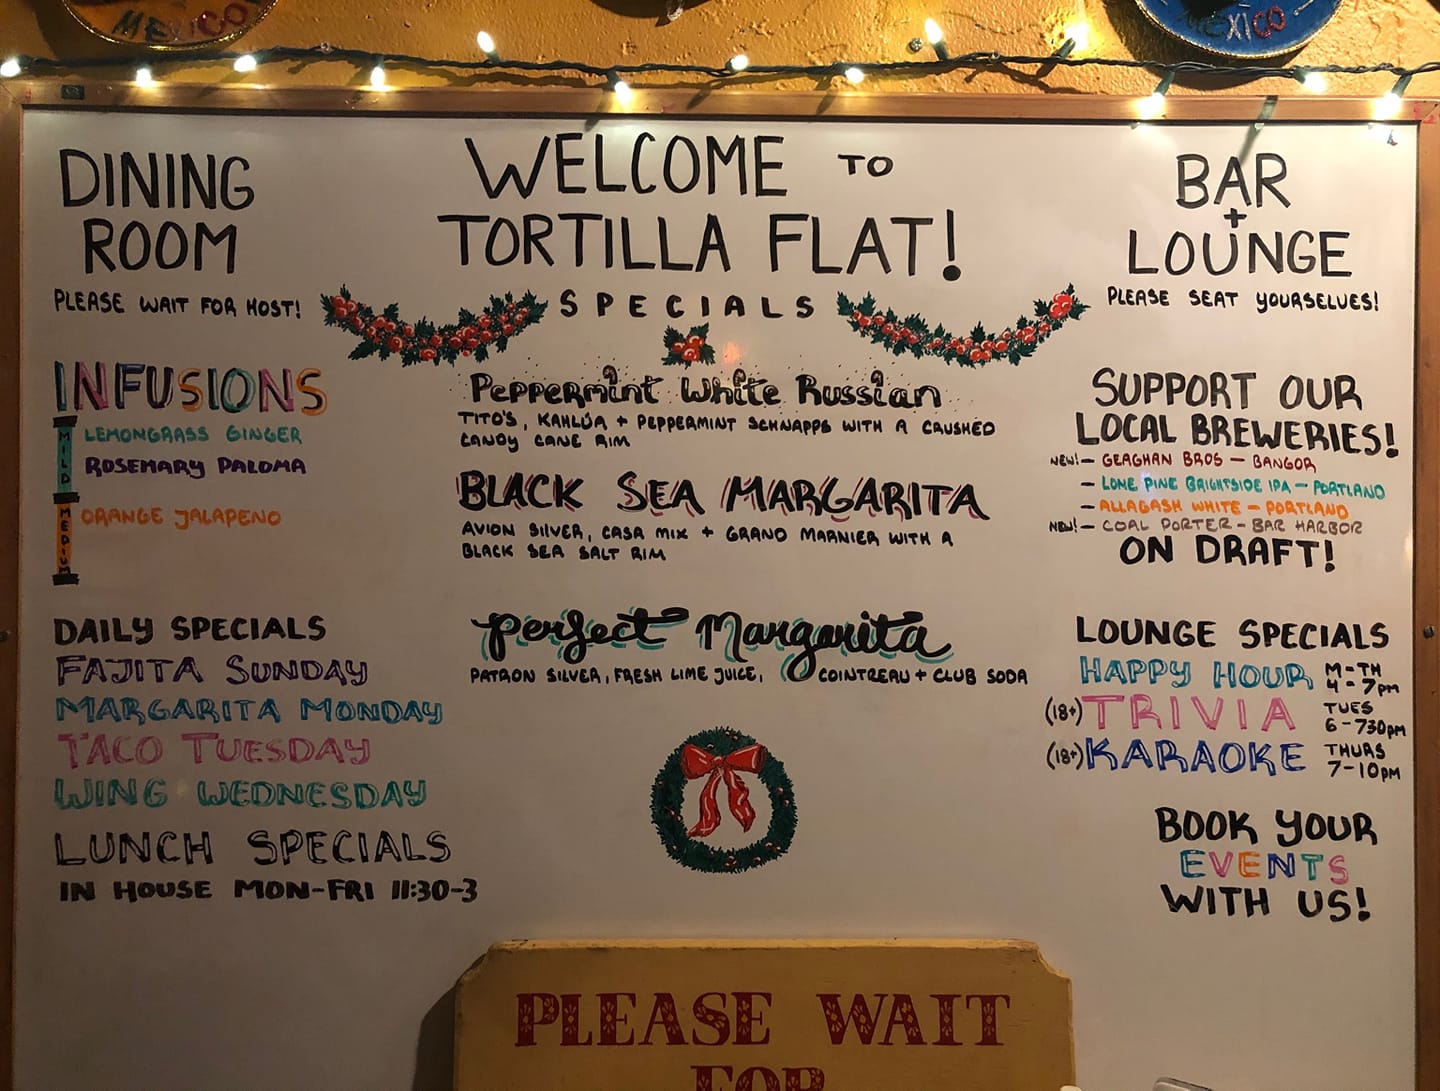 MEXICO
MEXICO
DINING
ROOM
PLEASE WAIT FOR HOST!
INFUSIONS
MILD
LEMONGRASS GINGER
ROSEMARY PALOMA
MEDIUM
ORANGE JALAPENO
DAILY SPECIALS
FAJITA SUNDAY
MARGARITA MONDAY
TACO TUESDAY
WING WEDNESDAY
LUNCH SPECIALS
IN HOUSE MON-FRI 11:30-3
WELCOME TO
TORTILLA FLAT!
SPECIALS
Peppermint White Russian
TITO'S, KAHLÚA + PEPPERMINT SCHNAPPS WITH A CRUSHED
CANDY CANE RIM
BLACK SEA MARGARITA
AVION SILVER, CASA MIX + GRAND MARNIER WITH A
BLACK SEA SALT RIM
Perfect Margarita
PATRON SILVER, FRESH LIME JUICE, COINTREAU + CLUB SODA
BAR
+
LOUNGE
PLEASE SEAT YOURSELVES!
SUPPORT OUR
LOCAL BREWERIES!
NEW! - GEAGHAN BROS - BANGOR
- LONE PINE BRIGHTSIDE IPA - PORTLAND
- ALLAGASH WHITE - PORTLAND
NEW! - COAL PORTER - BAR HARBOR
ON DRAFT!
LOUNGE SPECIALS
HAPPY HOUR M-TH 4-7pm
(18+) TRIVIA TUES 6-730pm
(18+) KARAOKE THURS 7-10pm
BOOK YOUR
EVENTS
WITH US!
PLEASE WAIT
FOR